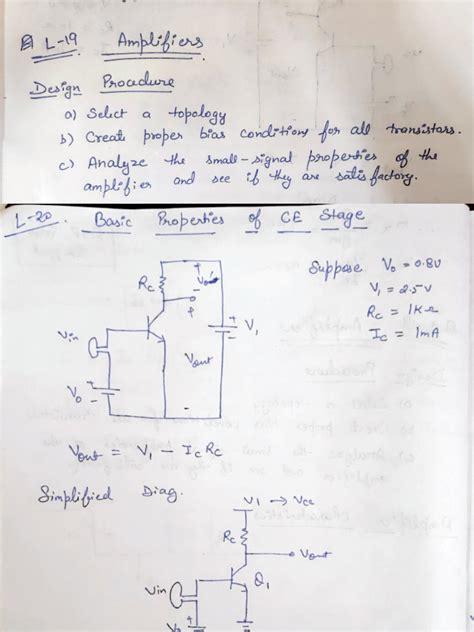 L-19 Amplifiers
Design Procedure
a) Select a topology
b) Create proper bias conditions for all transistors.
c) Analyze the small-signal properties of the
amplifier and see if they are satisfactory.
L-20. Basic Properties of CE Stage
Suppose V₀ = 0.8V
V₁ = 2.5V
R_C = 1KΩ
I_C = 1mA
R_C
+
-
+
Vin
V₁
Vout
V₀
-
Vout = V₁ - I_C R_C
Simplified Diag.
V₁ → Vcc
R_C
Vout
Vin
Q₁